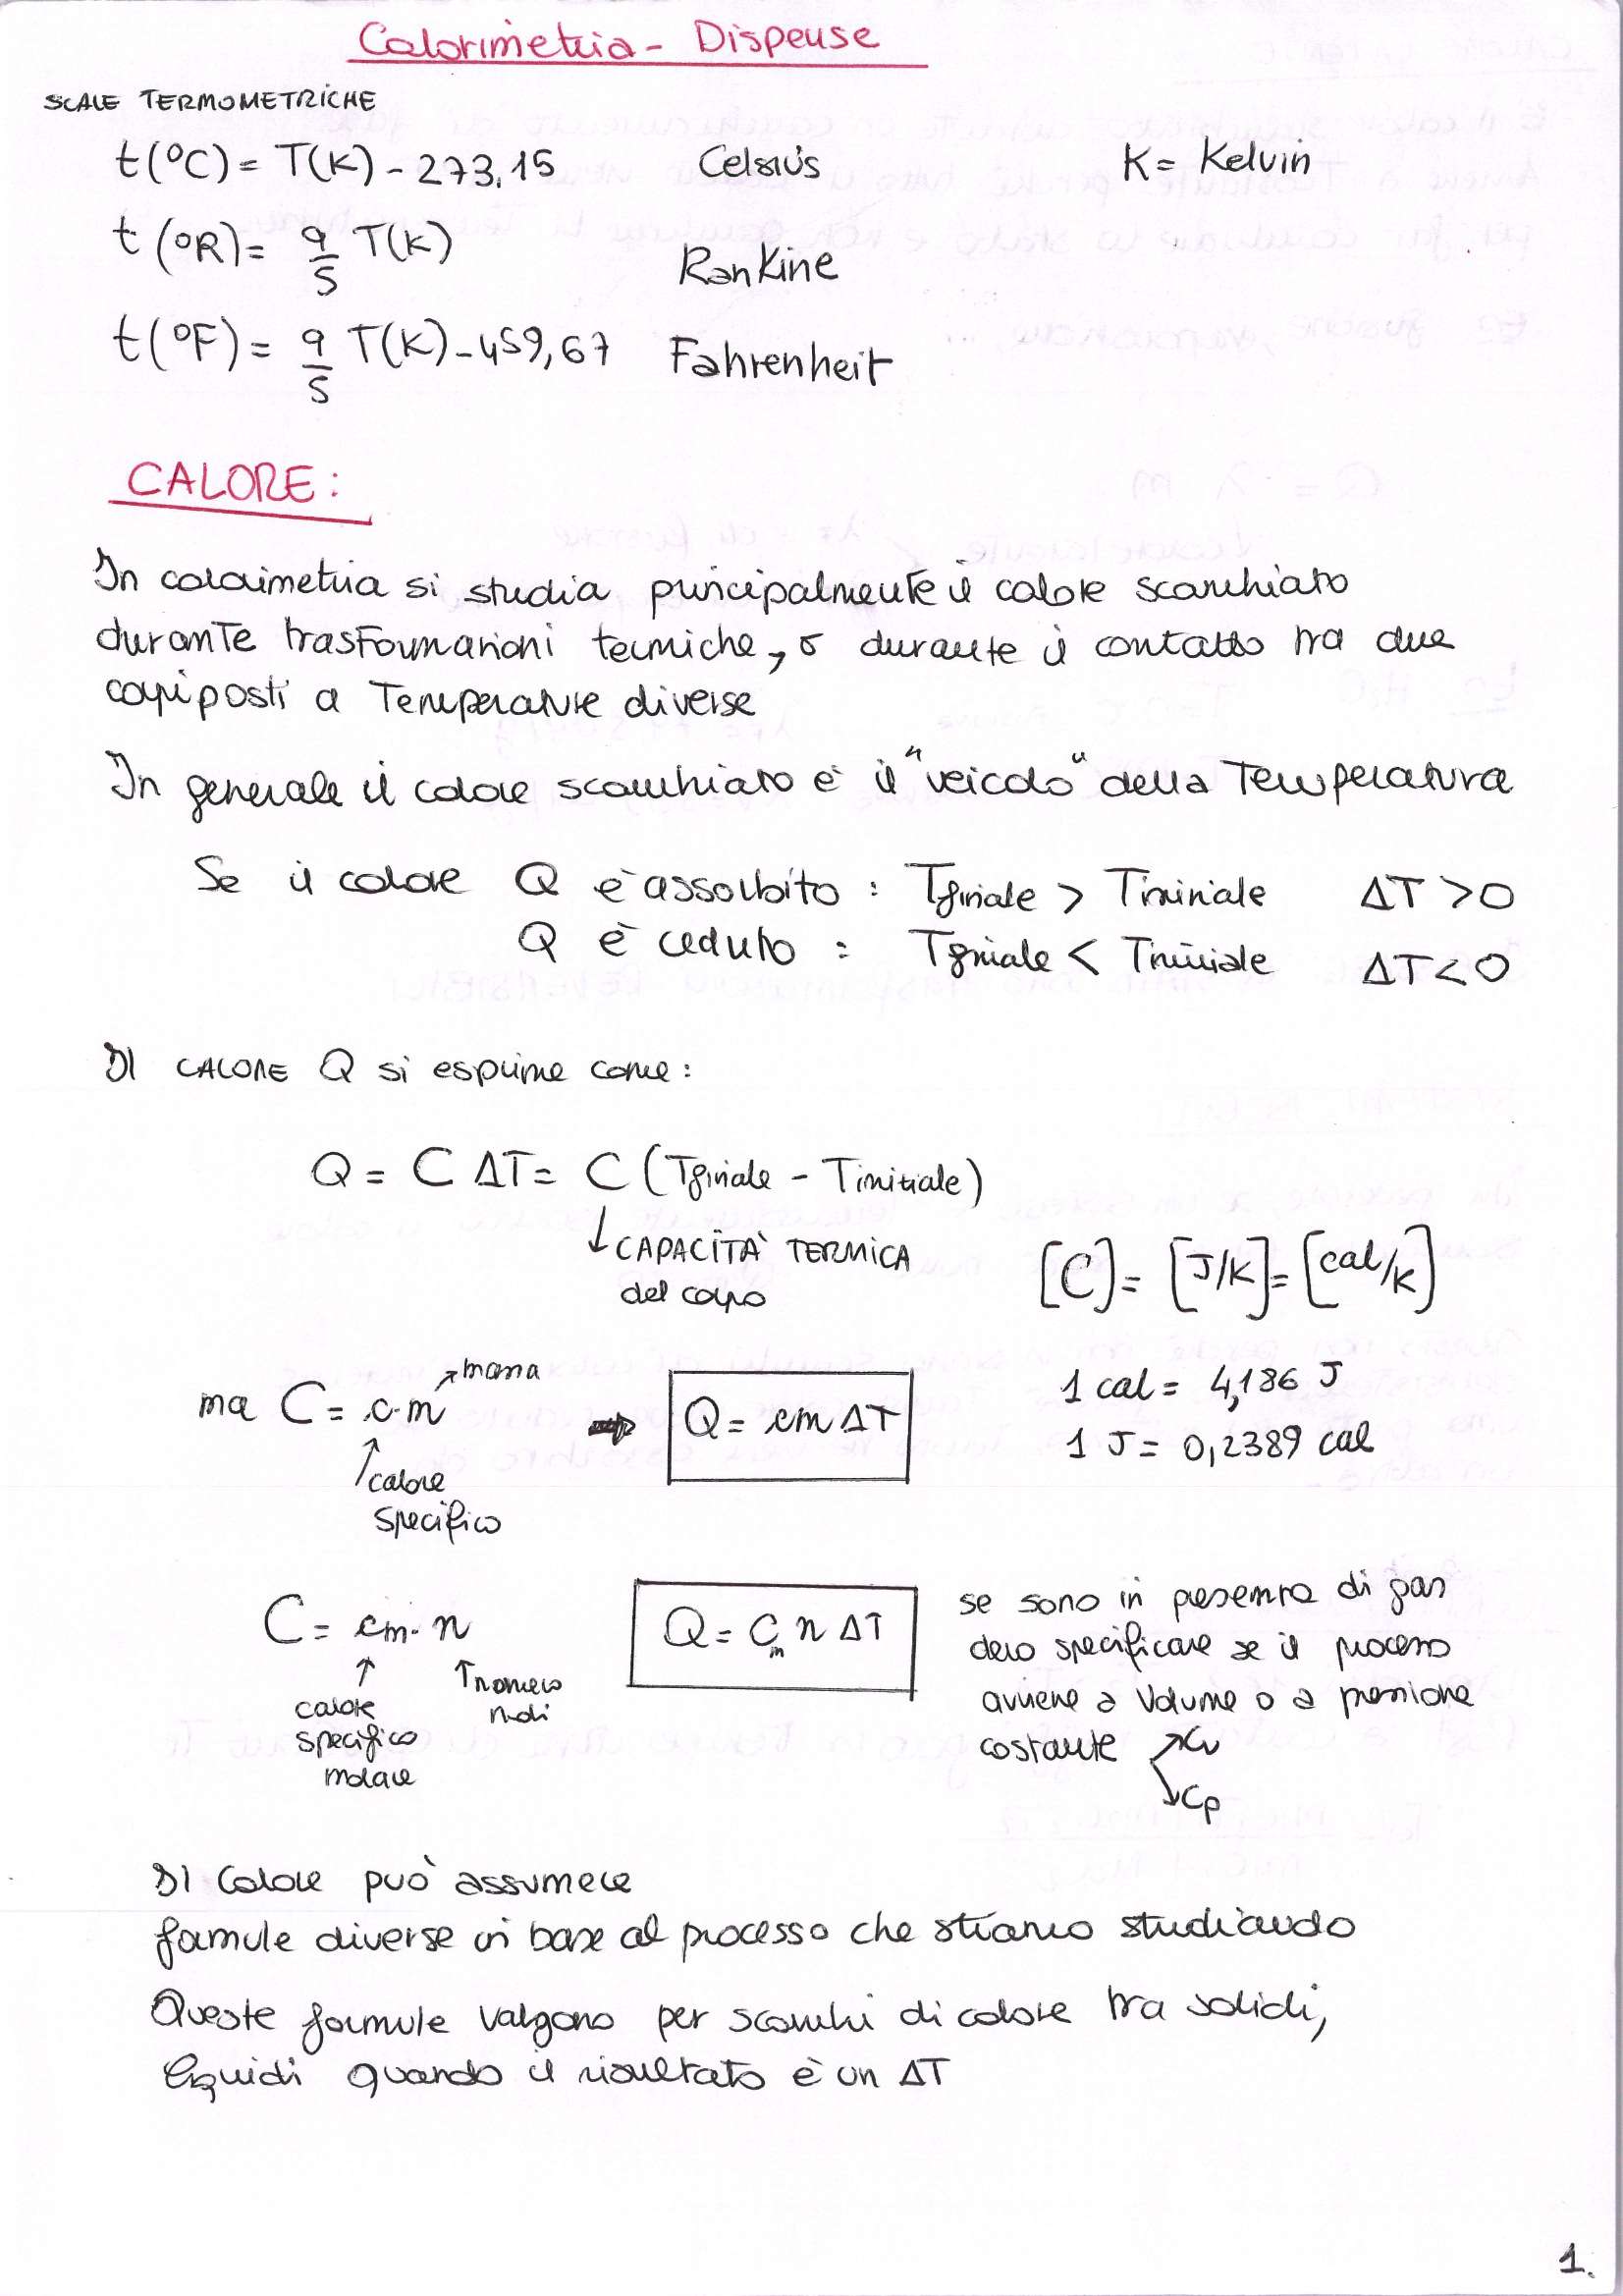 Calorimetria - Dispense
SCALE TERMOMETRICHE
t(°C) = T(K) - 273,15 Celsius K = Kelvin
t(°R) = 9/5 T(K) Rankine
t(°F) = 9/5 T(K) - 459,67 Fahrenheit
CALORE:
In calorimetria si studia principalmente il calore scambiato
durante trasformazioni termiche, o durante il contatto tra due
corpi posti a Temperature diverse
In generale il calore scambiato è il "veicolo" della Temperatura
Se il calore Q è assorbito : Tfinale > Tiniziale ΔT > 0
Q è ceduto : Tfinale < Tiniziale ΔT < 0
Il CALORE Q si esprime come:
Q = C ΔT = C (Tfinale - Tiniziale)
↓ CAPACITÀ TERMICA
del corpo
[C] = [J/K] = [cal/K]
ma C = c·m ↗ massa
↑ calore
specifico
→ Q = cm ΔT
1 cal = 4,186 J
1 J = 0,2389 cal
C = cm · n
↑ calore
specifico
molare
↑ numero
moli
Q = Cm n ΔT
se sono in presenza di gas
devo specificare se il processo
avviene a volume o a pressione
costante ↗ cv
↘ cp
Il calore può assumere
formule diverse in base al processo che stiamo studiando
Queste formule valgono per scambi di calore tra solidi,
liquidi quando il risultato è un ΔT
1.